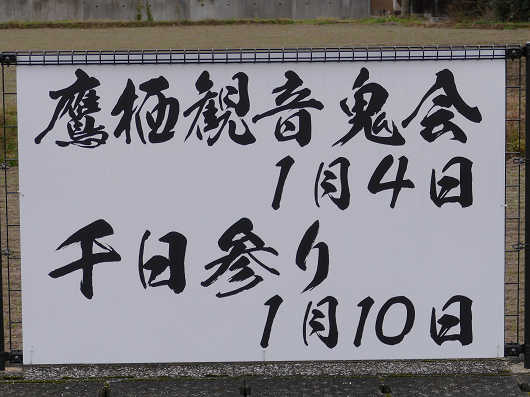 鷹栖観音鬼会
1月4日
千日参り
1月10日